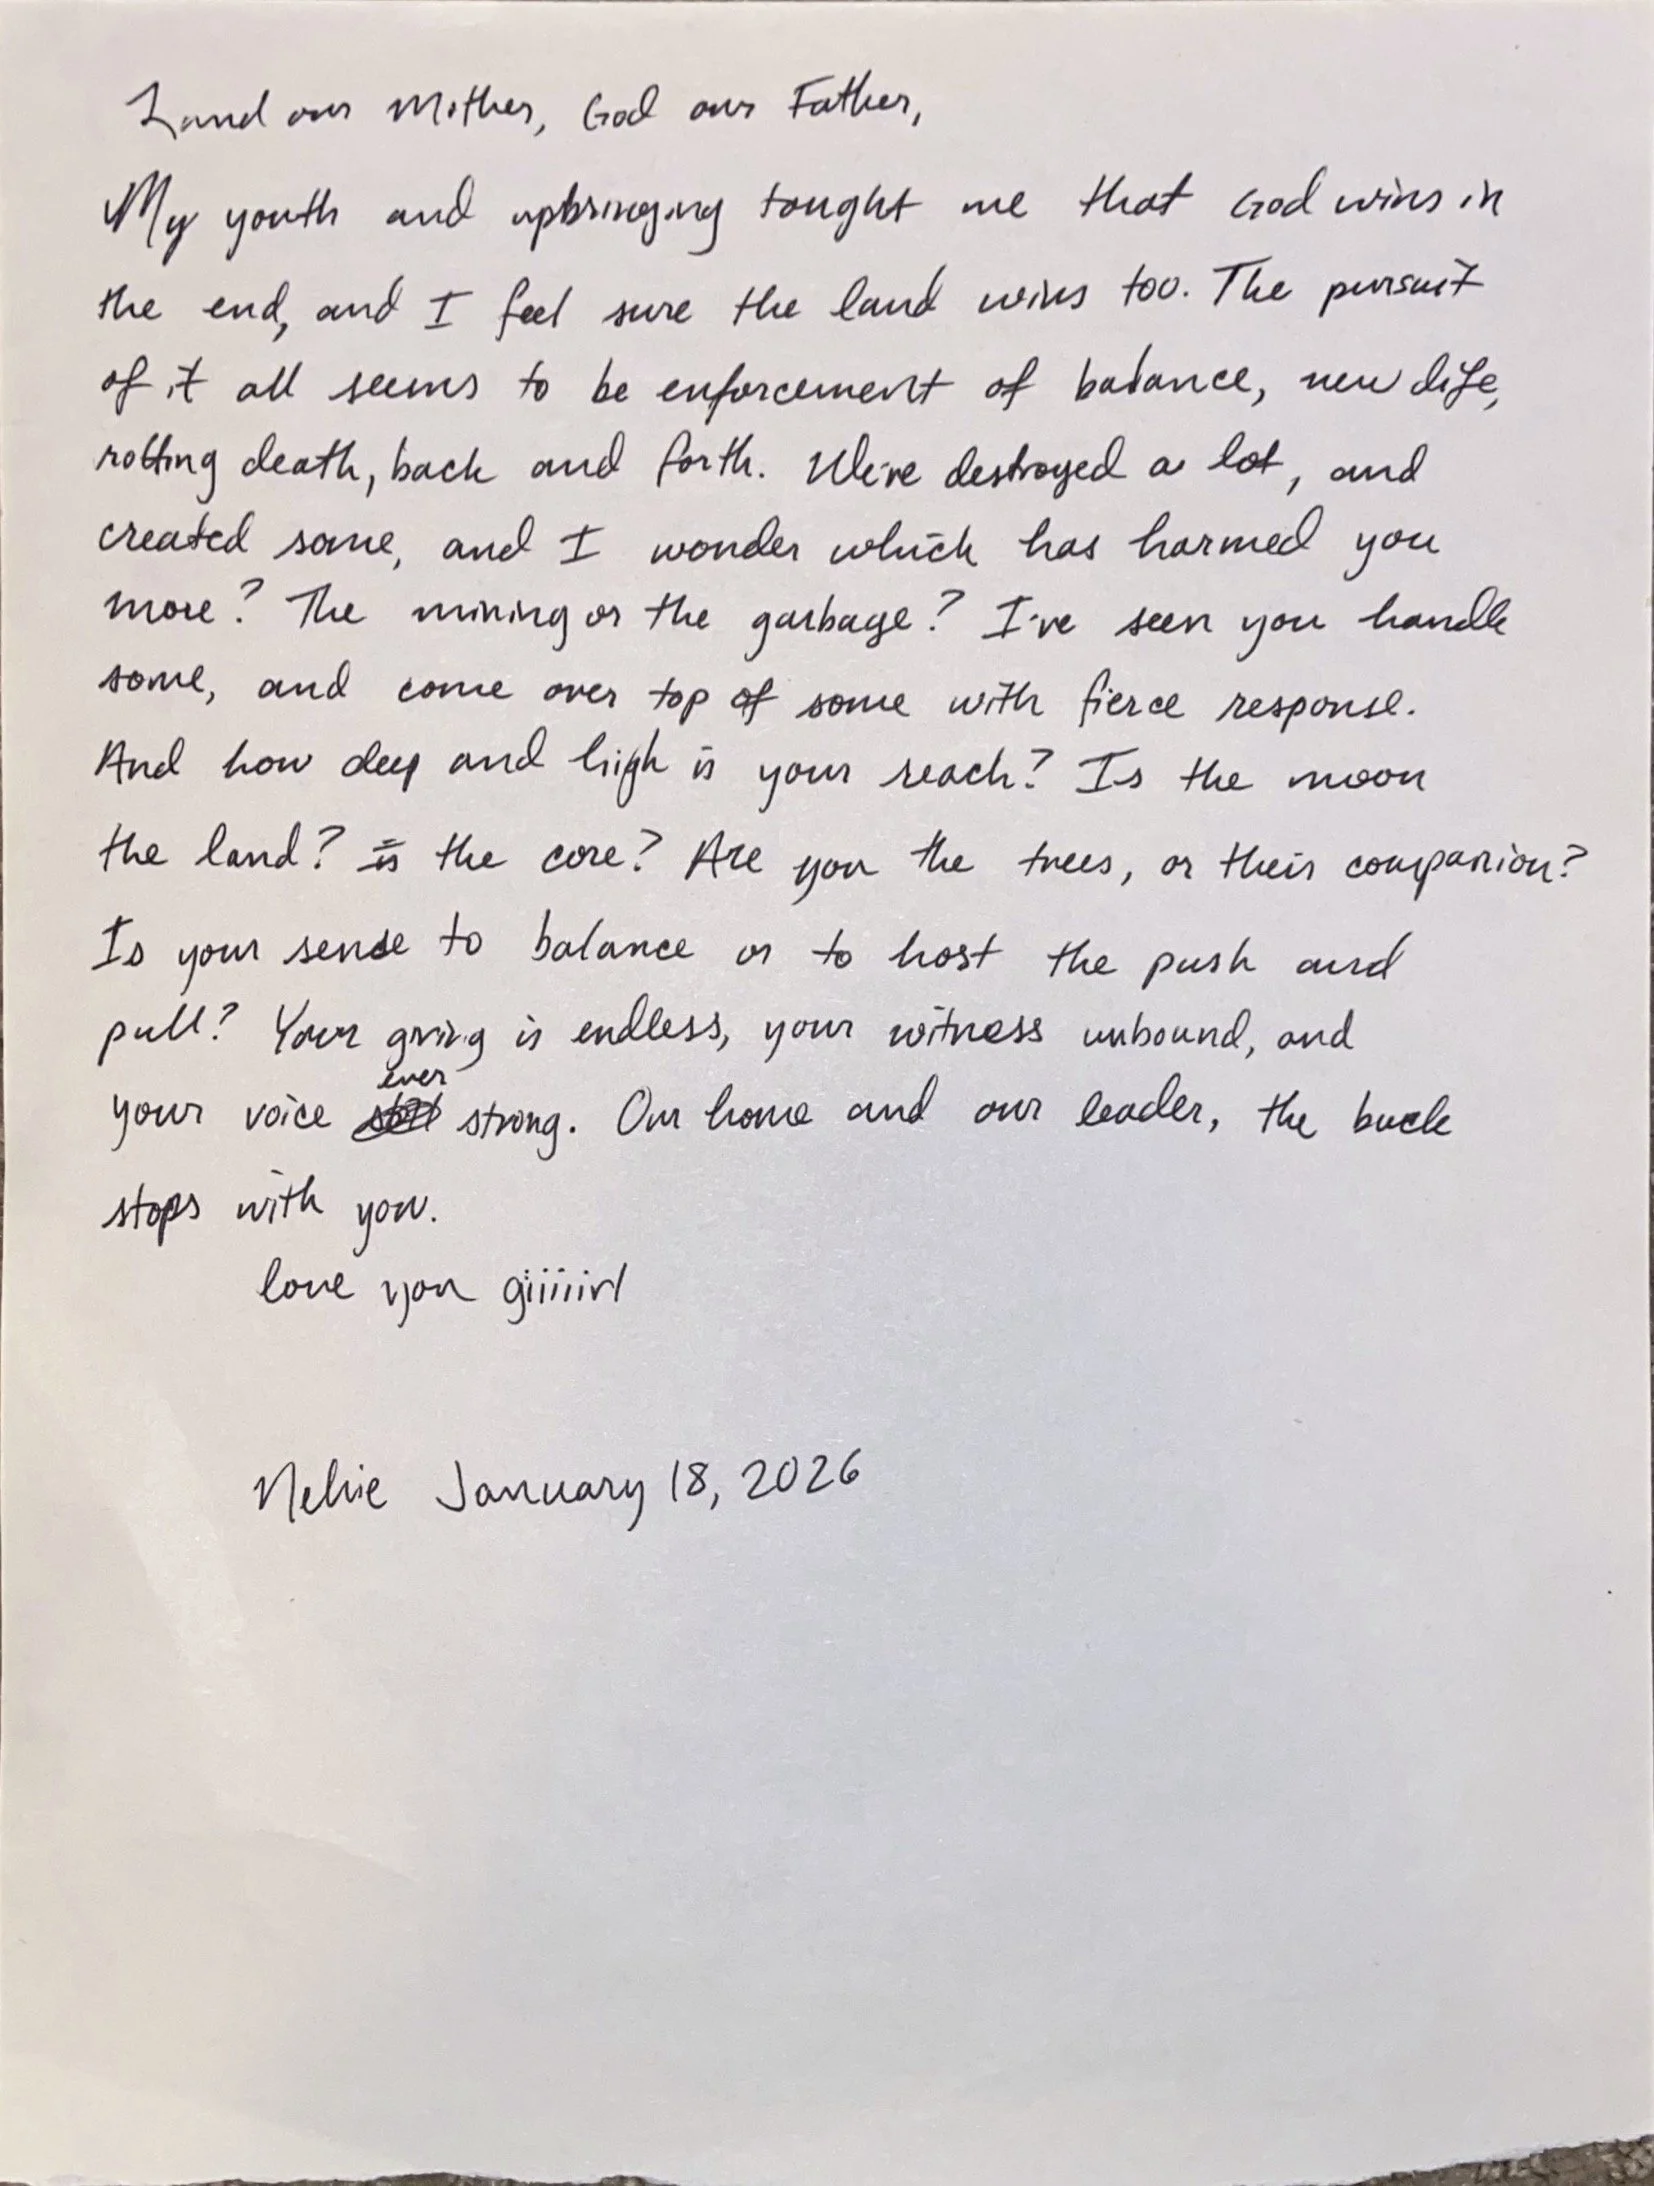 Land our Mother, God our Father,
My youth and upbringing tought me that God wins in
the end, and I feel sure the land wins too. The pursuit
of it all seems to be enforcement of balance, new life,
rotting death, back and forth. We've destroyed a lot, and
created some, and I wonder which has harmed you
more? The mining or the garbage? I've seen you handle
some, and come over top of some with fierce response.
And how deep and high is your reach? Is the moon
the land? is the core? Are you the trees, or their companion?
Is your sense to balance or to host the push and
pull? Your giving is endless, your witness unbound, and
your voice ever strong. Our home and our leader, the buck
stops with you.
love you giiiiirl
Nellie January 18, 2026